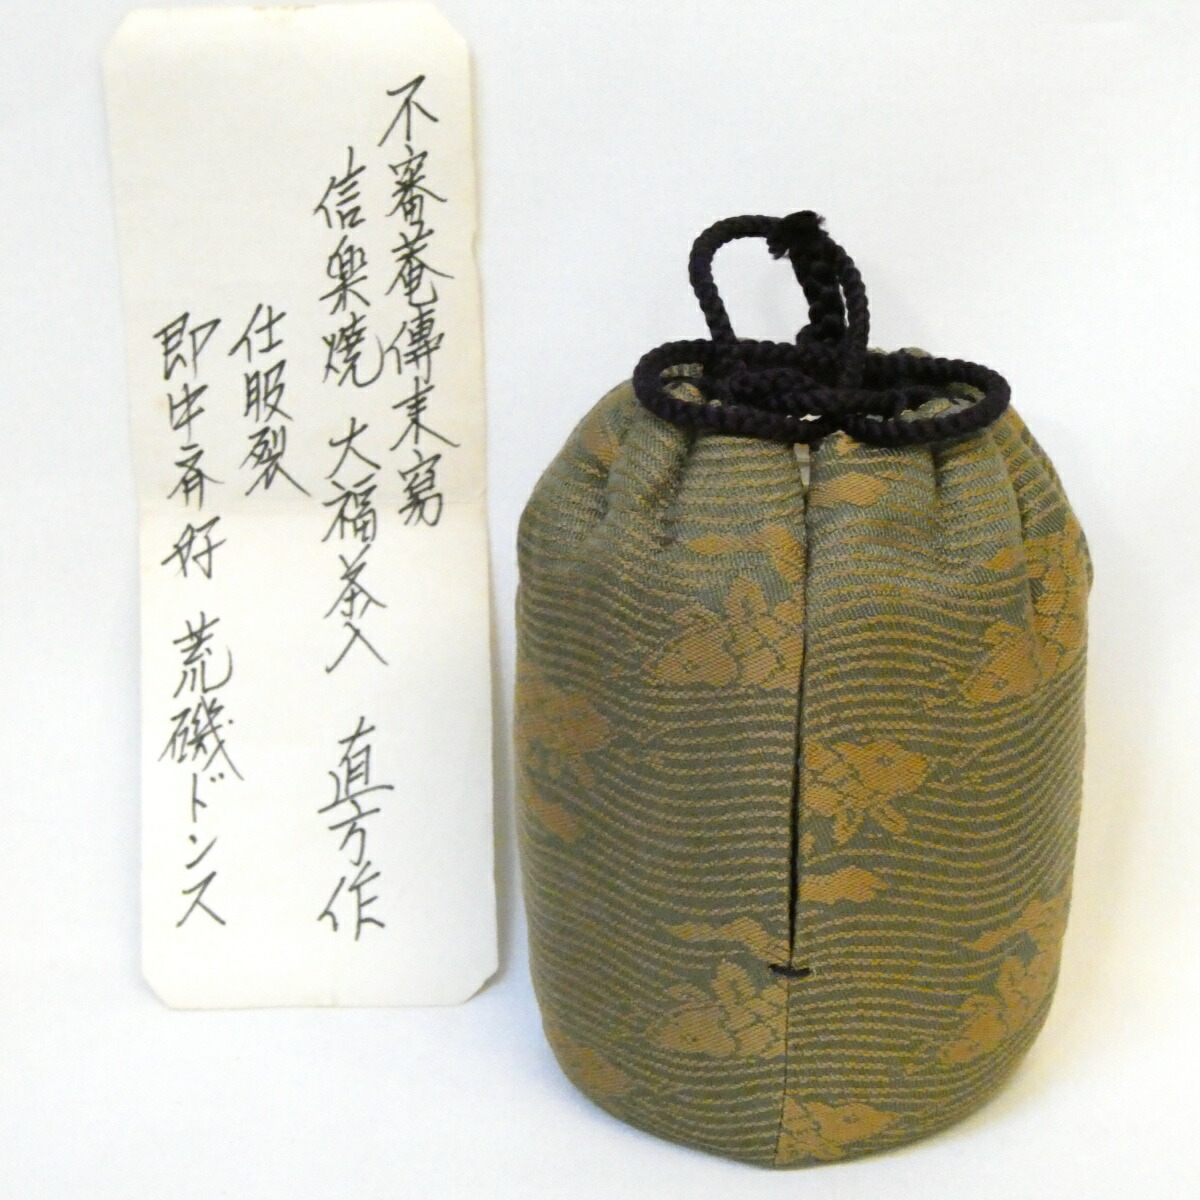 不審菴傳来寫
信楽焼 大福茶入 直方作
仕服裂
即中斉好 荒磯ドンス